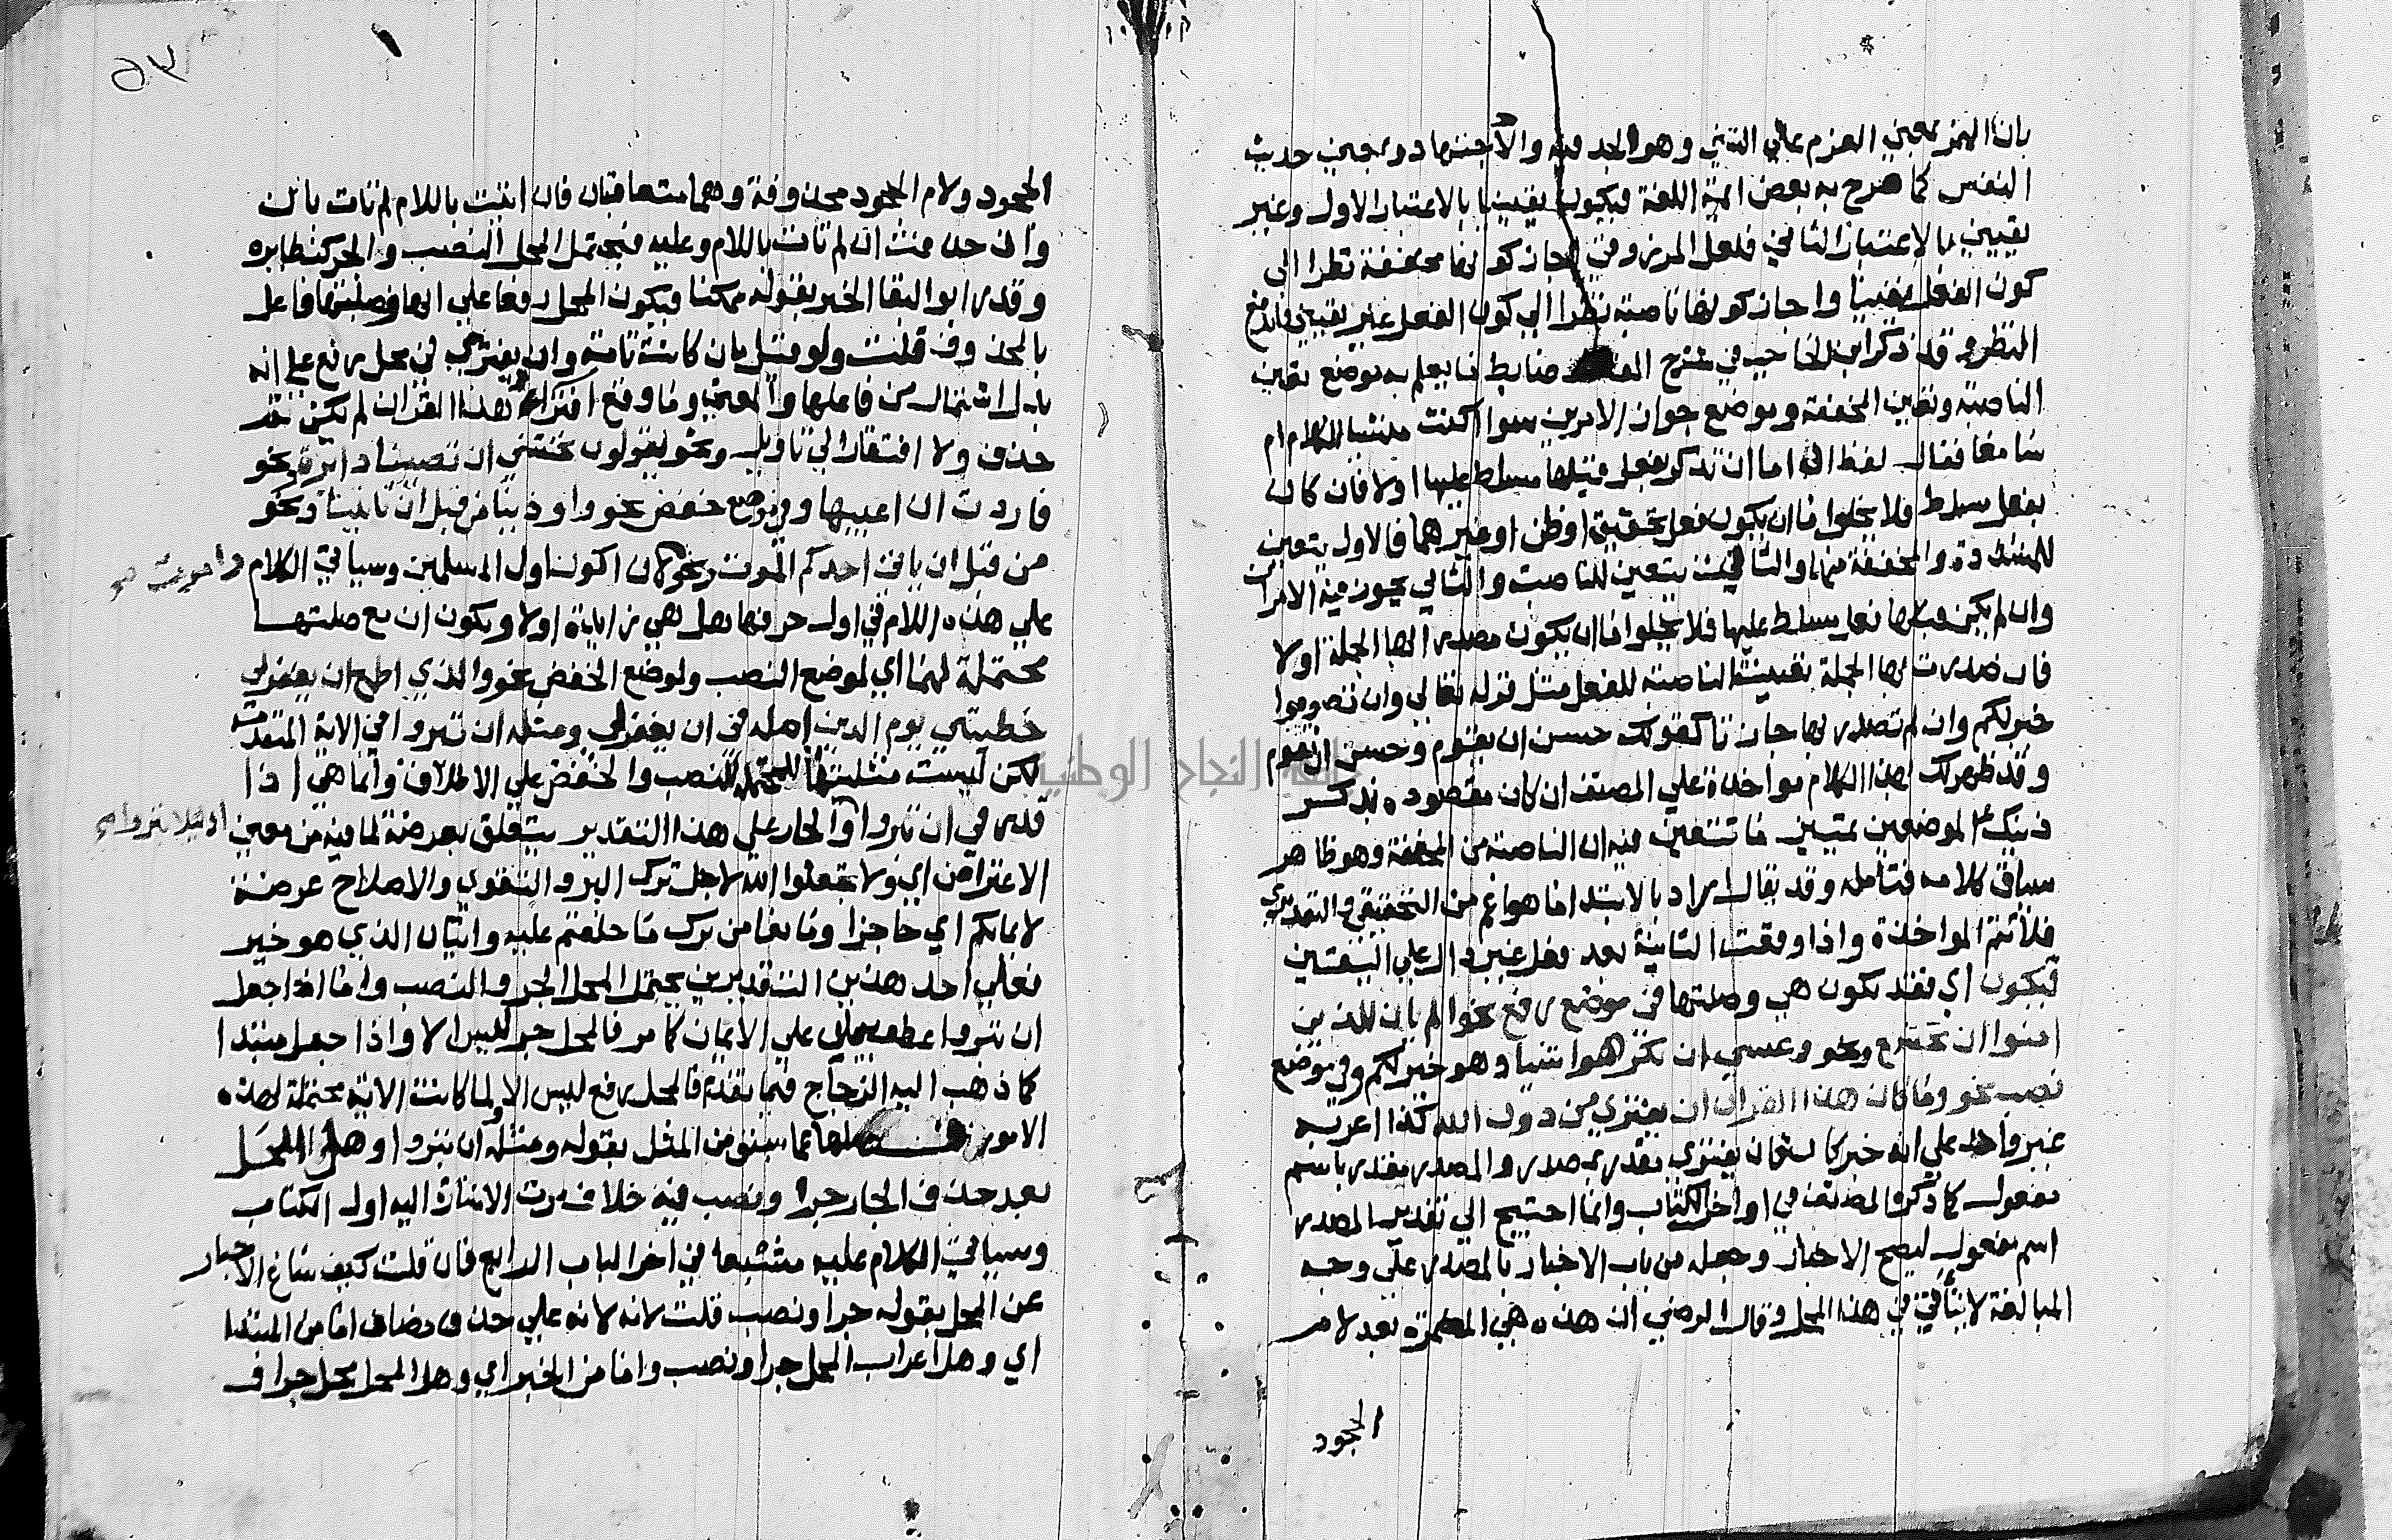 بان الهم بمعني العزم علي الشي وهو الجد فيه والاجتهاد وبمعني حديث
النفس كما صرح به بعض ايمة اللغة فيكون يقينيا بالاعتبار الاول وغير
يقيني بالاعتبار الثاني فلعل المرزوقي اجاز كونها مخففة نظرا الي
كون الفعل يقينيا واجاز كونها ناصبة نظرا الي كون الفعل غير يقيني
النظر وقد ذكر ابن الحاجب في شرح ضابط يعلم به موضع تعين
الناصبة وتعين المخففة وموضع جواز الامرين سوا كنت منشيا للكلام ام
سامعا فقال لفظ ان اما ان تذكر بفعل قبلها مسلط عليها اولا فان كان
بفعل مسلط فلا يخلوا اما ان يكون فعل تحقيق او ظن او غيرهما فالاول يتعين
للمشددة والمخففة منها والثالث يتعين للناصبة والثاني يجوز فيه الامران
وان لم يكن قبلها فعل مسلط عليها فلا يخلوا اما ان يكون مصدرا بها الجملة اولا
فان صدرت بها الجملة تعينت الناصبة للفعل مثل قوله تعالي وان تصوموا
خير لكم وان لم تصدر بها جاز تا كقولك حسن ان يقوم وحسن ان تقوم
وقد ظهر لك بهذا الكلام مواخذة علي المصنف ان كان مقصوده بذكر
ذينك الموضعين تمييز ما تتعين فيه ان الناصبة من المخففة وهو ظاهر
سياق كلامه فتامله وقد يقال اراد بالابتدا ما هو اعم من التحقيقي والتقديري
فلا تتم المواخذة واذا وقعت الثانية بعد فعل غير دال علي اليقين
فيكون اي فقد تكون هي وصلتها في موضع رفع نحو الم يان للذين
امنوا ان تخشع ونحو وعسي ان تكرهوا شيا وهو خير لكم وفي موضع
نصب نحو وما كان هذا القران ان يفتري من دون الله كذا اعربه
غير واحد علي انه خبر كان لان يفتري بقدر بمصدر والمصدر يقدر باسم
مفعول كما ذكره المصنف في اواخر الكتاب وانما احتيج الي تقدير المصدر
اسم مفعول ليصح الاخبار وجعله من باب الاخبار بالمصدر علي وجه
المبالغة لا يتاتي في هذا المحل وقال الرضي ان هذه هي المضمرة بعد لام
الجحود
٥٣
الجحود ولام الجحود محذوفة وهما متعاقبان فان اتيت باللام لم تات بان
وان حذفت ان لم تات باللام وعليه فيحتمل المحل النصب والجر كنظايره
وقدر ابو البقا الخبر بقوله ممكنا فيكون المحل رفعا علي انها وصلتها فاعل
بالمحذوف قلت ولو قيل بان كان تامة وان يفتري في محل رفع علي انه
بدل اشتمال من فاعلها والمعني وما وقع افتراء هذا القران لم يكن ثم
حذف ولا افتقار الي تاويل ونحو يقولون نخشي ان تصيبنا دايرة ونحو
فاردت ان اعيبها وفي موضع خفض نحو اوذينا من قبل ان تاتينا ونحو
من قبل ان ياتي احدكم الموت ونحو لان اكون اول المسلمين وسياتي الكلام
وامرت صح
علي هذه اللام في اول حرفها هل هي زايدة اولا ويكون ان مع صلتها
محتملة لهما اي لموضع النصب ولموضع الخفض نحو والذي اطمع ان يغفر لي
خطيئتي يوم الدين اصله في ان يغفر لي ومثله ان تبروا في الاية المتقدمة
لكن ليست مثليتها للمحتمل للنصب والخفض علي الاطلاق وانما هي اذا
قدر في ان تبروا والجار علي هذا التقدير يتعلق بعرضة لما فيه من معني
او ليلا تبروا صح
الاعتراض اي ولا تجعلوا الله لاجل ترك البر والتقوي والاصلاح عرضة
لايمانكم اي حاجزا ومانعا من ترك ما حلفتم عليه واتيان الذي هو خير
فعلي احد هذين التقديرين يحتمل المحل الجر والنصب واما اذا جعل
ان تبروا عطف علي الايمان كما مر فالمحل جر ليس الا واذا جعل مبتدا
كما ذهب اليه الزجاج فيما تقدم فالمحل رفع ليس الا ولما كانت الاية محتملة لهذه
الامور عما سبق من المثل بقوله ومثله ان تبروا وهل المحل
بعد حذف الجار جر او نصب فيه خلاف مرت الاشارة اليه اول الكتاب
وسياتي الكلام عليه مشبعا في اخر الباب الرابع فان قلت كيف ساغ الاخبار
عن المحل بقوله جر او نصب قلت لانه لانه علي حذف مضاف اما من المبتدا
اي وهل اعراب المحل جر او نصب واما من الخبر اي وهل المحل محل جر او
جامعة النجاح الوطنية